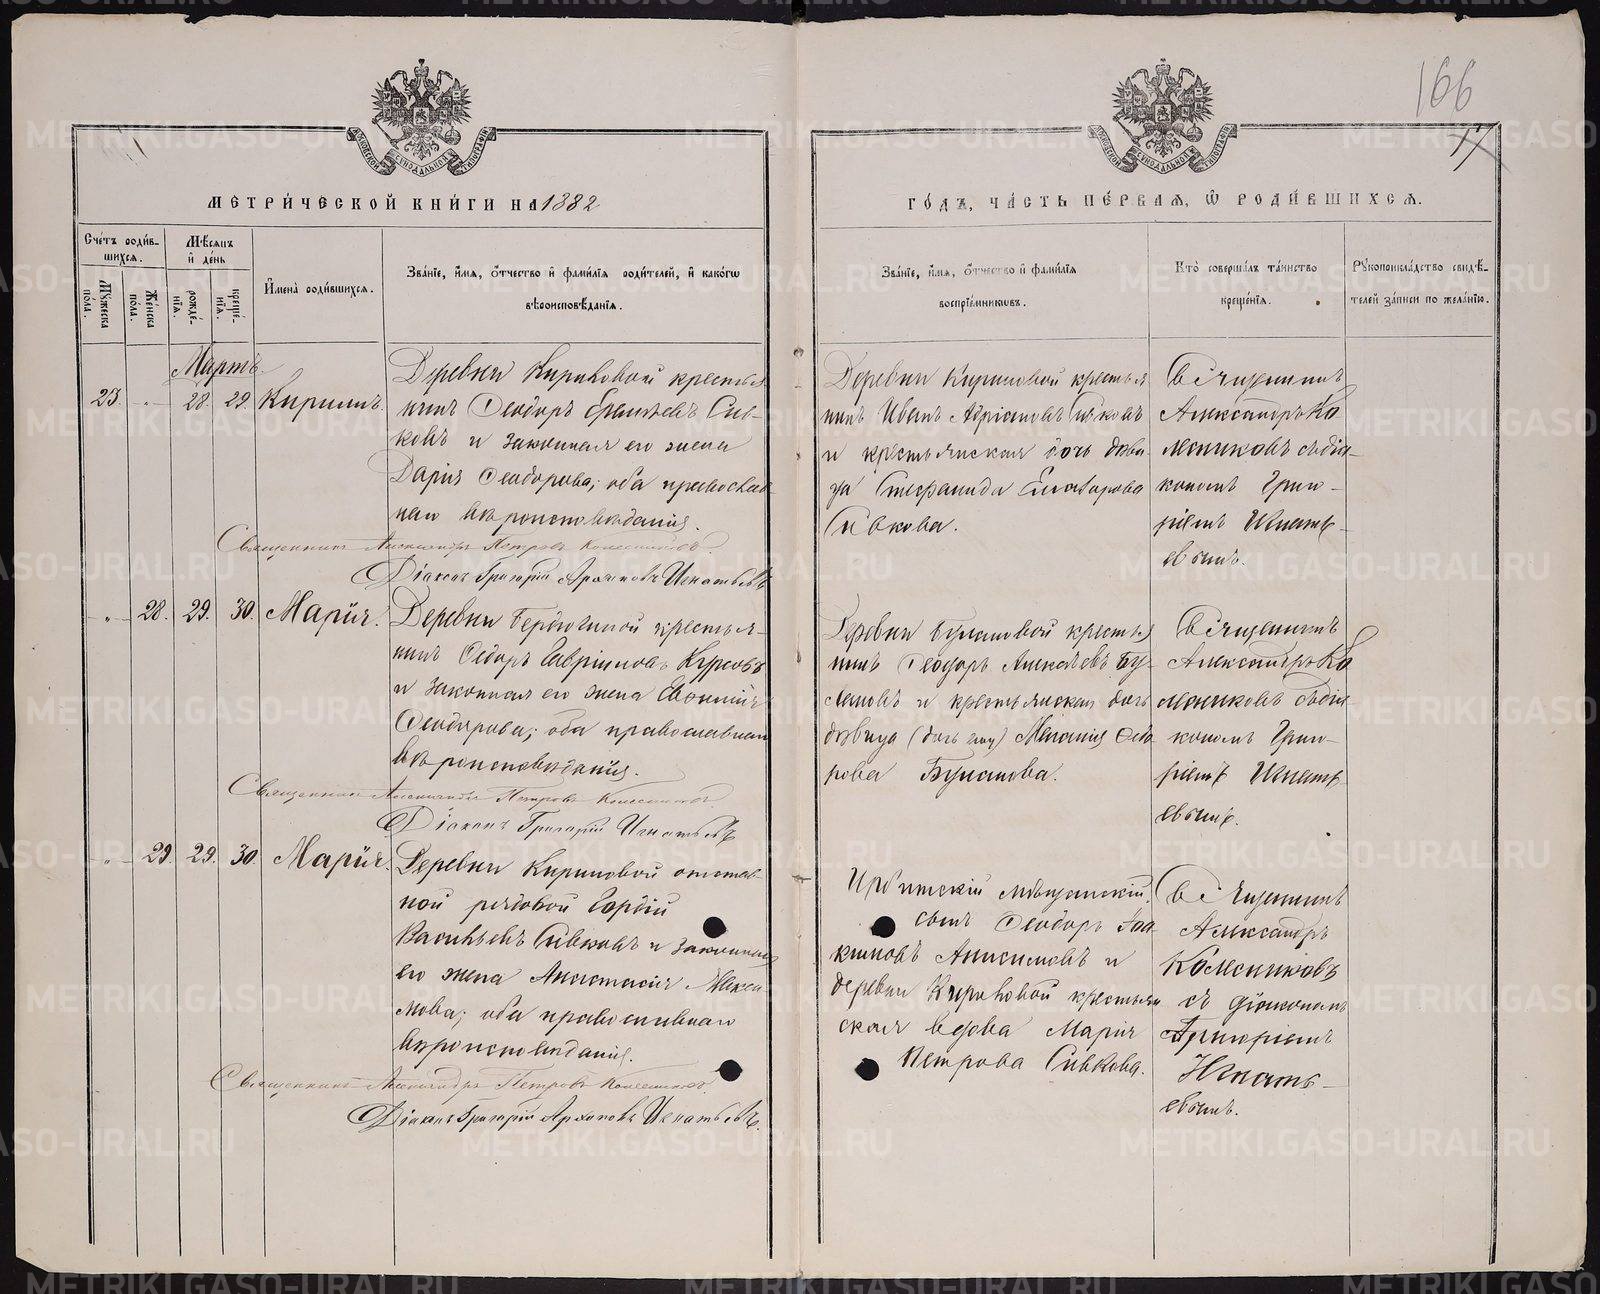 166
17
МЕТРИ́ЧЕСКОЙ КНИ́ГИ НА 1882
ГО́ДЪ, ЧА́СТЬ ПЕ́РВАЯ, Ѡ РОДИ́ВШИХСЯ.
Сче́тъ роди́в-
шихся.
Мꙋ́жеска по́ла.
Же́нска по́ла.
Мѣ́сяцъ и де́нь
рожде́нїя.
креще́нїя.
И҆мена̀ роди́вшихся.
Зва́нїе, и҆́мя, ѻ҆́тчество и҆ фами́лїя роди́телей, и҆ како́гѡ
вѣроисповѣ́данїя.
Зва́нїе, и҆́мя, ѻ҆́тчество и҆ фами́лїя
воспрїе́мниковъ.
Кто̀ соверша́лъ та́инство
креще́нїя.
Рꙋкоприкла́дство свидѣ́-
телей за́писи по жела́нїю.
Мартъ
23. „ 28 29. Кириллъ.
Деревни Кириловой крестья
нинъ Ѳеодоръ Сив-
ковъ и законная его жена
Дарія Ѳеодорова; оба православ-
наго вѣроисповѣданія.
Священникъ Александръ Петровъ Колесниковъ.
Діаконъ Григорій Игнатьевъ
Деревни Кириловой крестья
нинъ Иванъ Адріановъ Сивковъ
и крестьянская дочь дѣви
ца Стефанида Сивкова.
Священникъ
Александръ Ко
лесниковъ съ діа-
кономъ Григо-
ріемъ Игнать-
евымъ.
„ 28. 29. 30. Марія.
Деревни Бердюгиной крестья-
нинъ Ѳедоръ Гавріиловъ
и законная его жена Евѳимія
Ѳеодорова; оба православнаго
вѣроисповѣданія.
Священникъ Александръ Петровъ Колесниковъ
Діаконъ Григорій Игнатьевъ
Деревни Булановой крестья
нинъ Ѳеодоръ Алексѣевъ Бу-
лановъ и крестьянская дочь
дѣвица (дочь его) Меланія Ѳедо
рова Буланова.
Священникъ
Александръ Ко
лесниковъ съ діа
кономъ Григо-
ріемъ Игнать-
евымъ.
„ 29. 29. 30. Марія.
Деревни Кириловой отстав-
ной рядовой Гордій
Васильевъ Сивковъ и законная
его жена Анастасія Макси
мова; оба православнаго
вѣроисповѣданія.
Священникъ Александръ Петровъ Колесниковъ
Діаконъ Григорій Игнатьевъ.
Ирбитскій мѣщанскій
сынъ Ѳеодоръ Іоа
кимовъ Анисимовъ и
деревни Кириловой крестьян
ская вдова Марія
Петрова Сивкова.
Священникъ
Александръ
Колесниковъ
съ діакономъ
Григоріемъ
Игнать-
евымъ.
METRIKI.GASO-URAL.RU